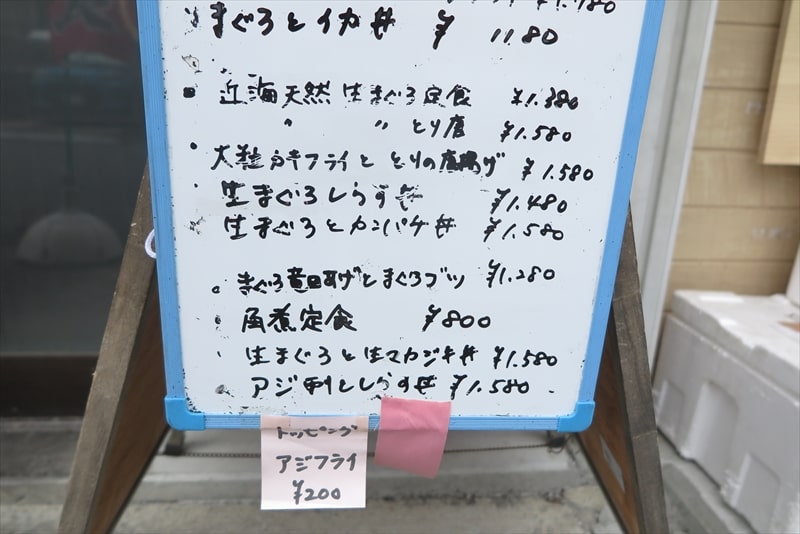 ¥1,780
まぐろとイカ丼 ¥1180
近海天然生まぐろ定食 ¥1.380
〃 〃 とり唐 ¥1.580
大粒カキフライと とりの唐揚げ ¥1.580
生まぐろしらす丼 ¥1.480
生まぐろとカンパチ丼 ¥1.580
まぐろ竜田あげとまぐろブツ ¥1.280
角煮定食 ¥800
生まぐろと生マカジキ丼 ¥1.580
アジ刺としらす丼 ¥1.580
トッピング
アジフライ
¥200